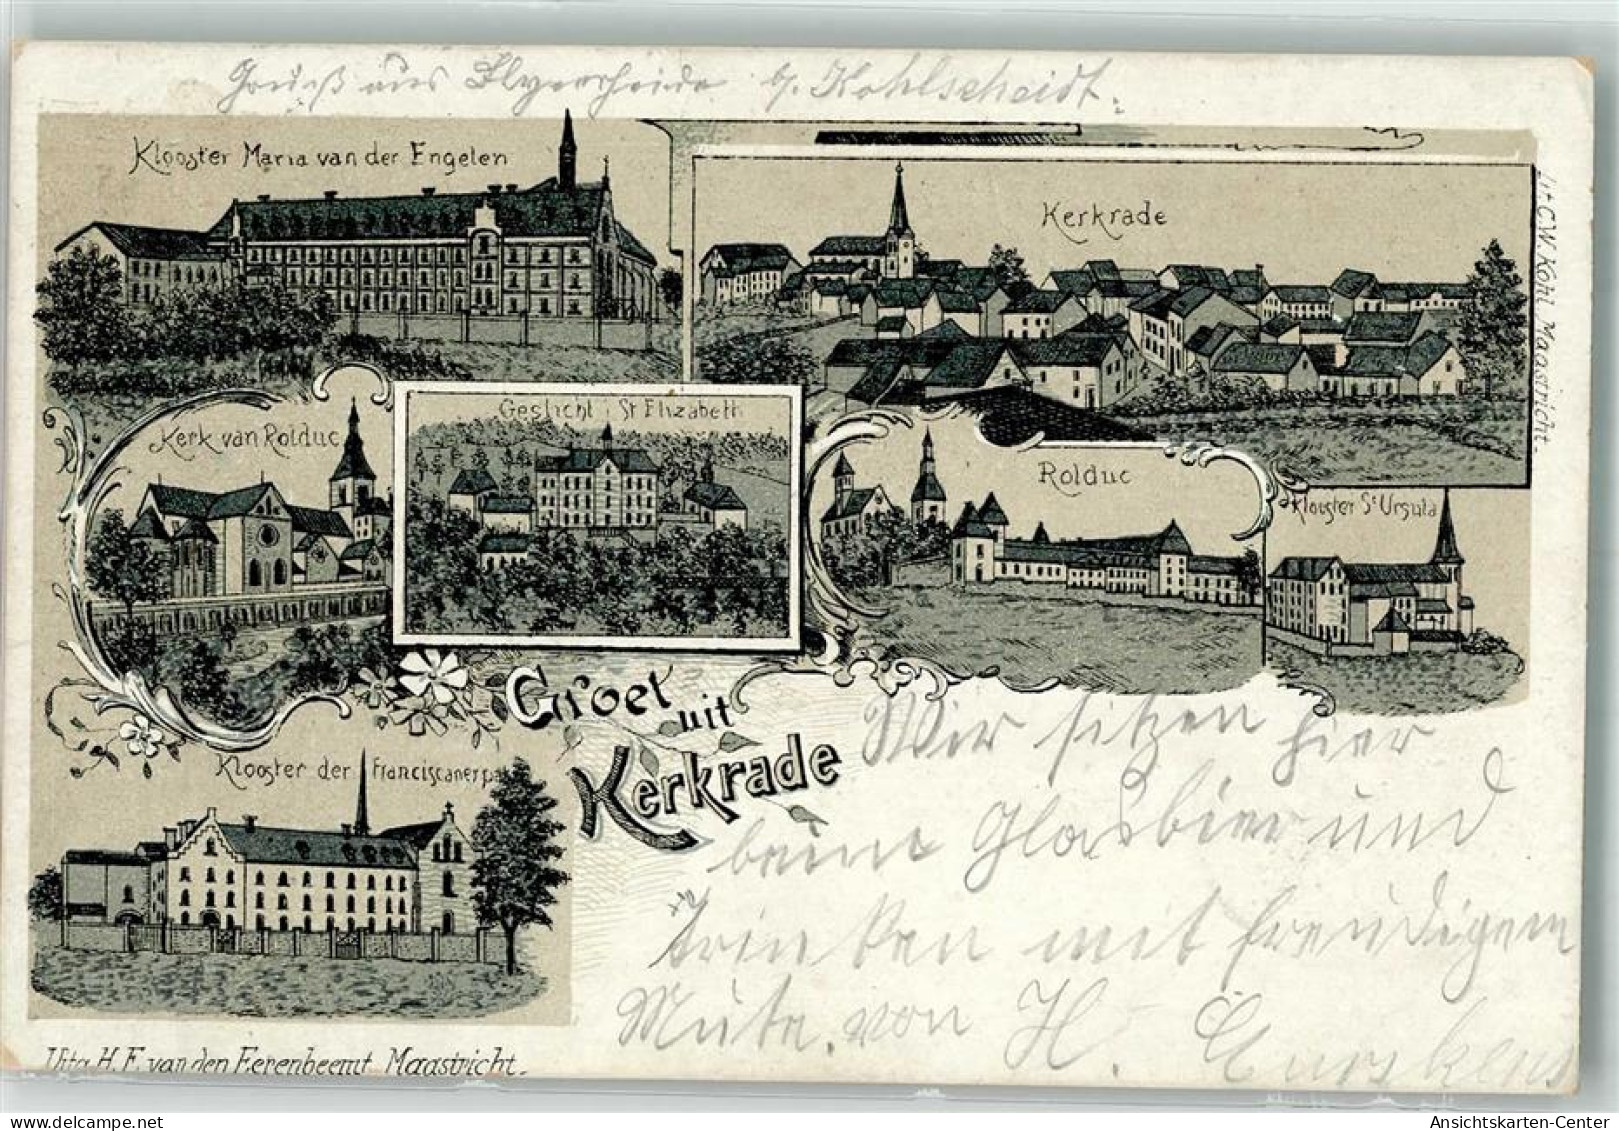 Gruß aus b/ Kohlscheidt.
Klooster Maria van der Engelen
Kerkrade
Lit C.W. Köhl Maastricht.
Kerk van Rolduc
Gesticht St Elizabeth
Rolduc
Klooster St Ursula
Groet
uit
Kerkrade
Klooster der Franciscanerpa
Wir sitzen hier
beim Glas bier und
trinken mit freudigem
Mute. von H.
Uitg. H. F. van den Eerenbeemt Maastricht.
Ansichtskarten-Center